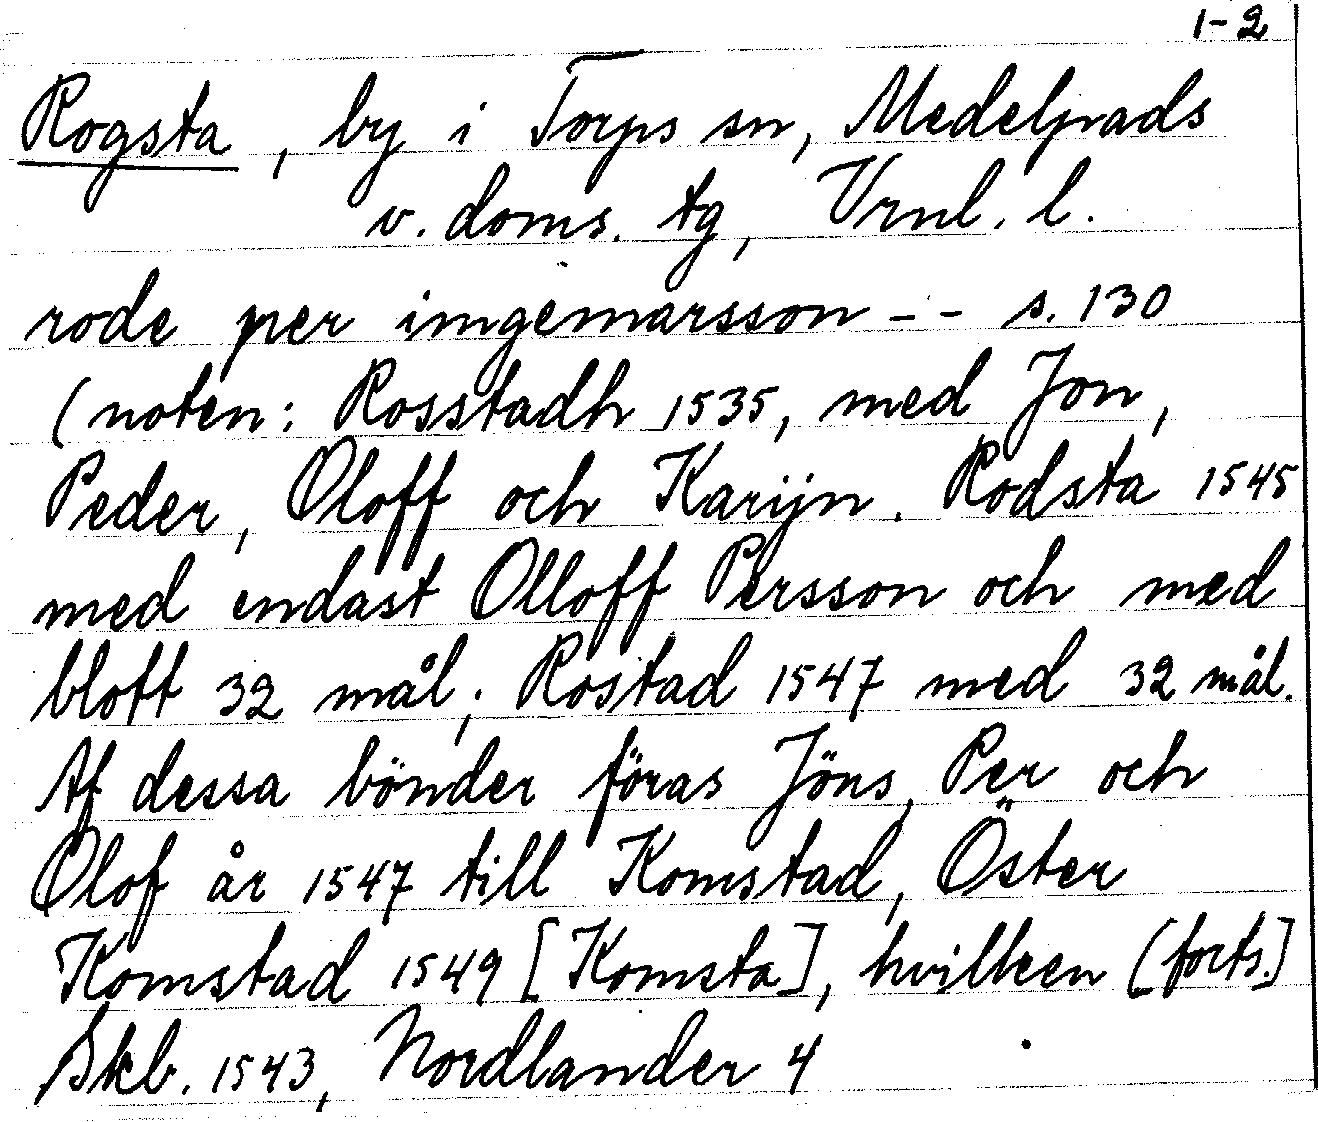 1-2
Rogsta, by i Torps sn, Medelpads
v. doms. tg, Vrnl. l.
rode per imgemarsson - - s. 130
(noten: Rosstadh 1535, med Jon,
Peder, Oloff och Karijn. Rodsta 1545
med endast Olloff Persson och med
blott 32 mål; Rostad 1547 med 32 mål.
Af dessa bönder föras Jöns, Per och
Olof år 1547 till Komstad, Öster
Komstad 1549 [Komsta], hvilken (forts.]
Skb. 1543, Nordlander 4